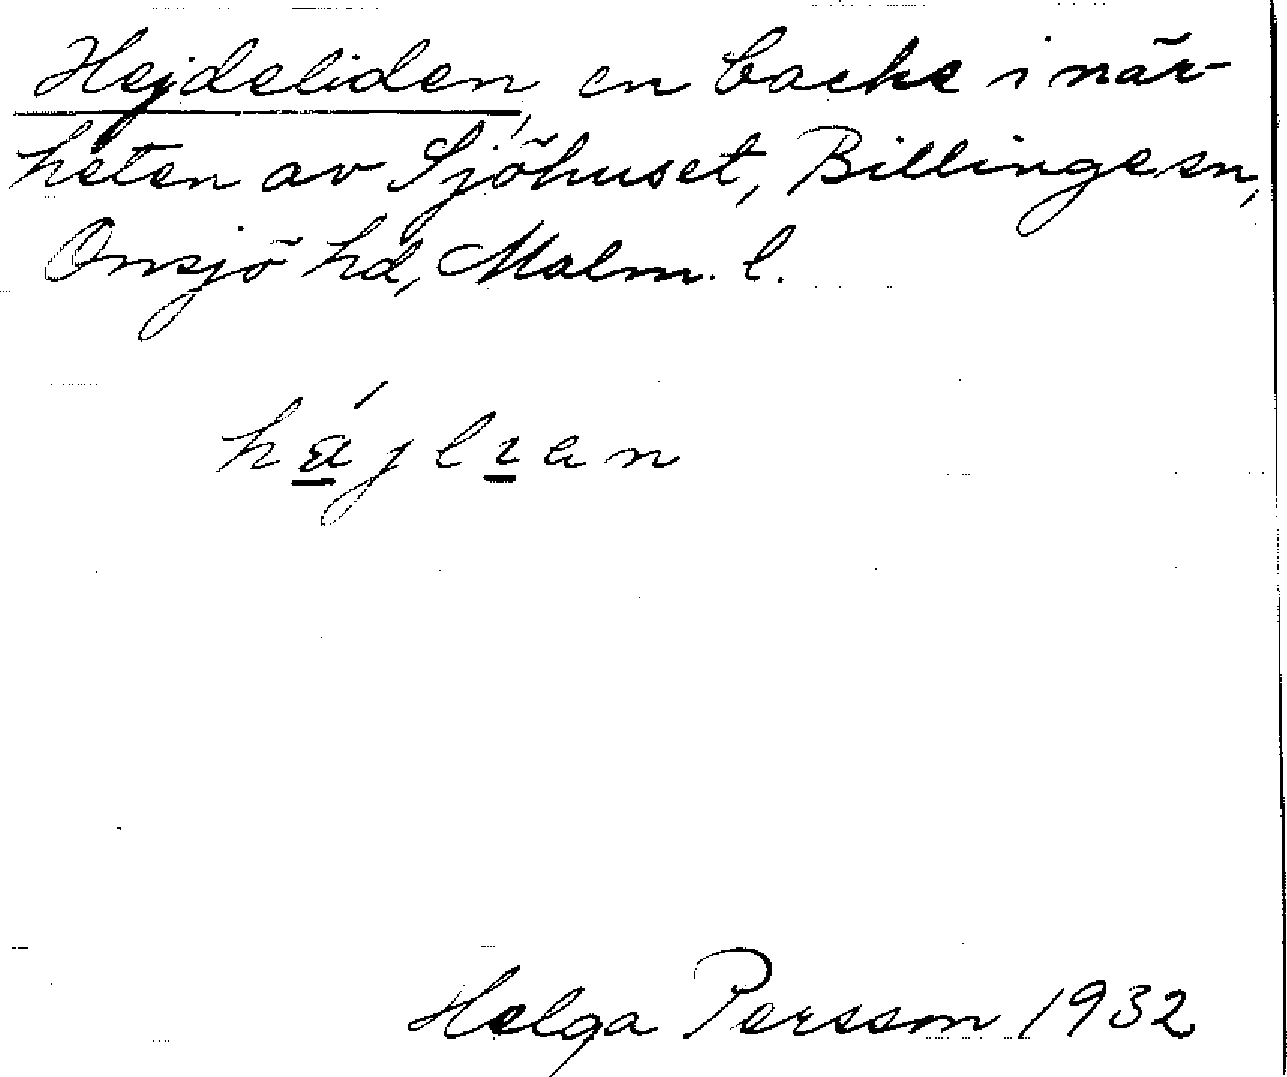 Hejdeliden, en backe i när-
heten av Sjöhuset, Billinge sn,
Onsjö hd, Malm. l.
hájlıan
Helga Persson 1932